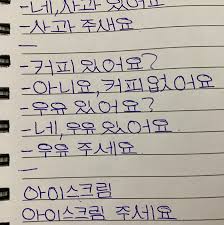 -네, 사과 있어요
-사과 주세요
—
-커피 있어요?
-아니요, 커피 없어요
-우유 있어요?
-네, 우유 있어요
-우유 주세요
—
아이스크림
아이스크림 주세요